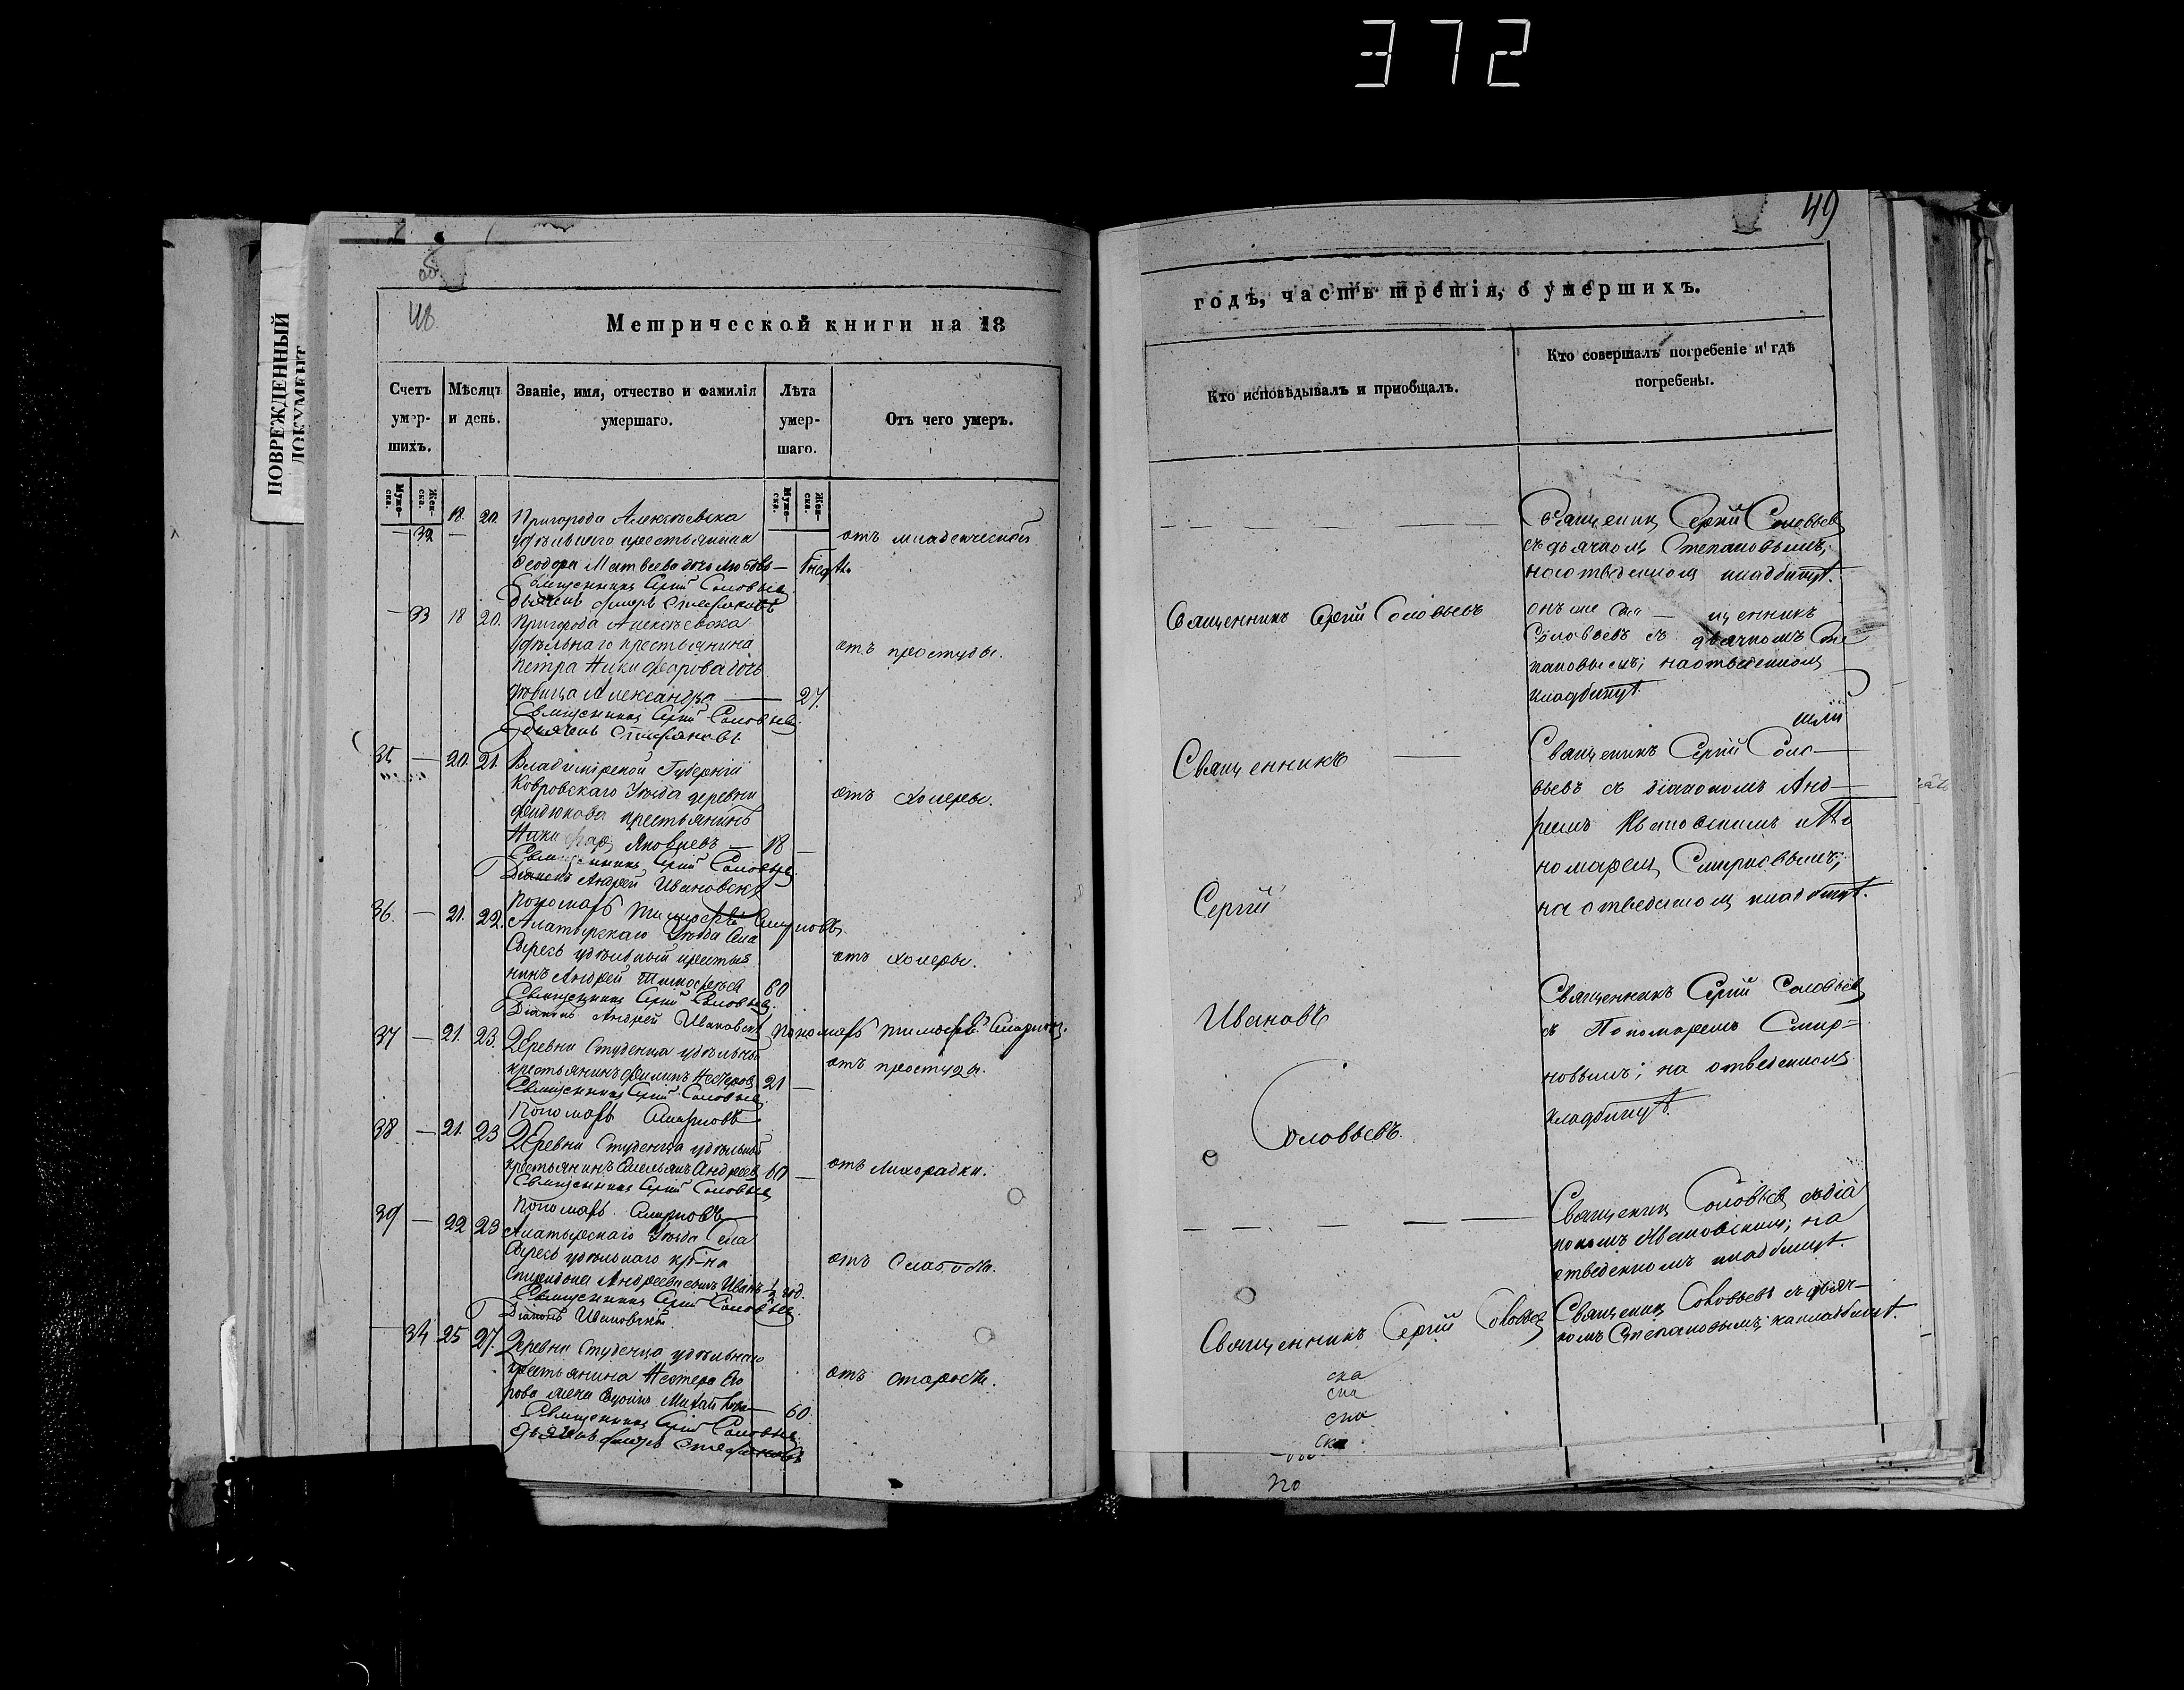 372
ПОВРЕЖДЕННЫЙ
ДОКУМЕНТ
об
48
Метрической книги на 18
Счетъ умер-шихъ.
Муже-ска.
Жен-ска.
Мѣсяцъ и день.
Званіе, имя, отчество и фамилія умершаго.
Лѣта умер-шаго.
Муже-ска.
Жен-ска.
Отъ чего умеръ.
— 32 18. 20. Пригорода Алексѣевска
удѣльнаго крестьянина отъ младенческой
Ѳеодора Матвѣева дочь Любовь —
Священникъ Сергій Соловьевъ
— 33 18 20. Пригорода Алексѣевска
удѣльнаго крестьянина отъ простуды.
Петра Никифорова дочь
дѣвица Александра — 27.
Священникъ Сергій Соловьевъ
35 — 20. 21. Владимірской Губерніи
Ковровскаго Уѣзда деревни отъ холеры.
крестьянинъ
Никифоръ Яковлевъ — 18 —
Священникъ Сергій Соловьевъ
Діаконъ Андрей Ивановскій
Пономарь Тимофей Смирновъ
36. — 21. 22. Алатырскаго Уѣзда Села
Сыресь удѣльный крестья отъ холеры.
нинъ Андрей Тимофеевъ 60
Священникъ Сергій Соловьевъ
Діаконъ Андрей Ивановскій Пономарь Тимофей Смирновъ.
37 — 21. 23. Деревни Студенца удѣльный
крестьянинъ Филипъ Нестеровъ 21 — отъ простуды.
Священникъ Сергій Соловьевъ
Пономарь Смирновъ
38 — 21. 23 Деревни Студенца удѣльный
крестьянинъ Емельянъ Андреевъ 60 — отъ лихорадки.
Священникъ Сергій Соловьевъ
Пономарь Смирновъ
39 — 22 23 Алатырскаго Уѣзда Села
Сыресь удѣльнаго кр-на отъ слабости.
Спиридона Андреева сынъ Иванъ ½ год.
Священникъ Сергій Соловьевъ
Діаконъ Ивановскій
34 25 27. Деревни Студенца удѣльнаго
крестьянина Нестера Его отъ старости.
рова жена Михайлова — 60.
Священникъ Сергій Соловьевъ
49
годъ, часть третія, о умершихъ.
Кто исповѣдывалъ и приобщалъ.
Кто совершалъ погребеніе и гдѣ погребены.
Священникъ Сергій Соловьевъ
съ дьячкомъ Степановымъ;
на отведенномъ кладбищѣ.
Священникъ Сергій Соловьевъ
онъ же свя — щенникъ
Соловьевъ съ дьячкомъ Сте
пановымъ; на отведенномъ
кладбищѣ.
Священникъ —
Священникъ Сергій Соло —
вьевъ съ діакономъ Анд —
реемъ Ивановскимъ и По
номаремъ Смирновымъ;
на отведенномъ кладбищѣ.
Сергій
Ивановъ
Соловьевъ.
Священникъ Сергій Соловьевъ
съ Пономаремъ Смир=
новымъ; на отведенномъ
кладбищѣ.
Священникъ Соловьевъ съ діа
кономъ Ивановскимъ; на
отведенномъ кладбищѣ.
Священникъ Сергій Соловьевъ
Священникъ Соловьевъ съ дьяч—
комъ Степановымъ; на кладбищѣ.
ска
ска
ска
ска
по